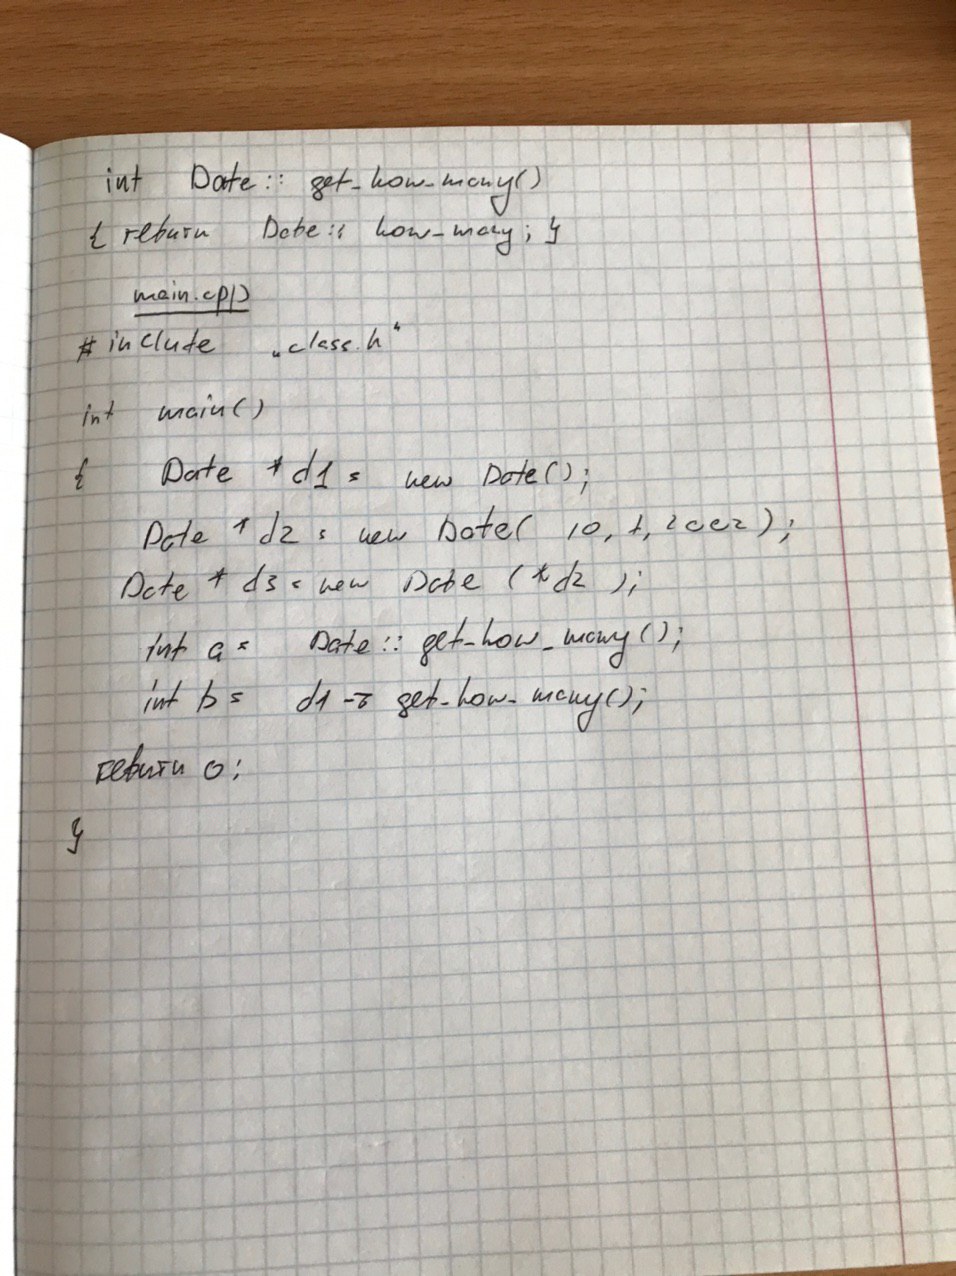 int Date:: get_how_many()
{ return Date:: how_many; }
main.cpp
# include „class.h“
int main()
{ Date * d1 = new Date();
Date * d2 = new Date( 10, 1, 2002 );
Date * d3 = new Date (*d2 );
int a = Date:: get_how_many();
int b = d1 -> get_how_many();
return 0;
}